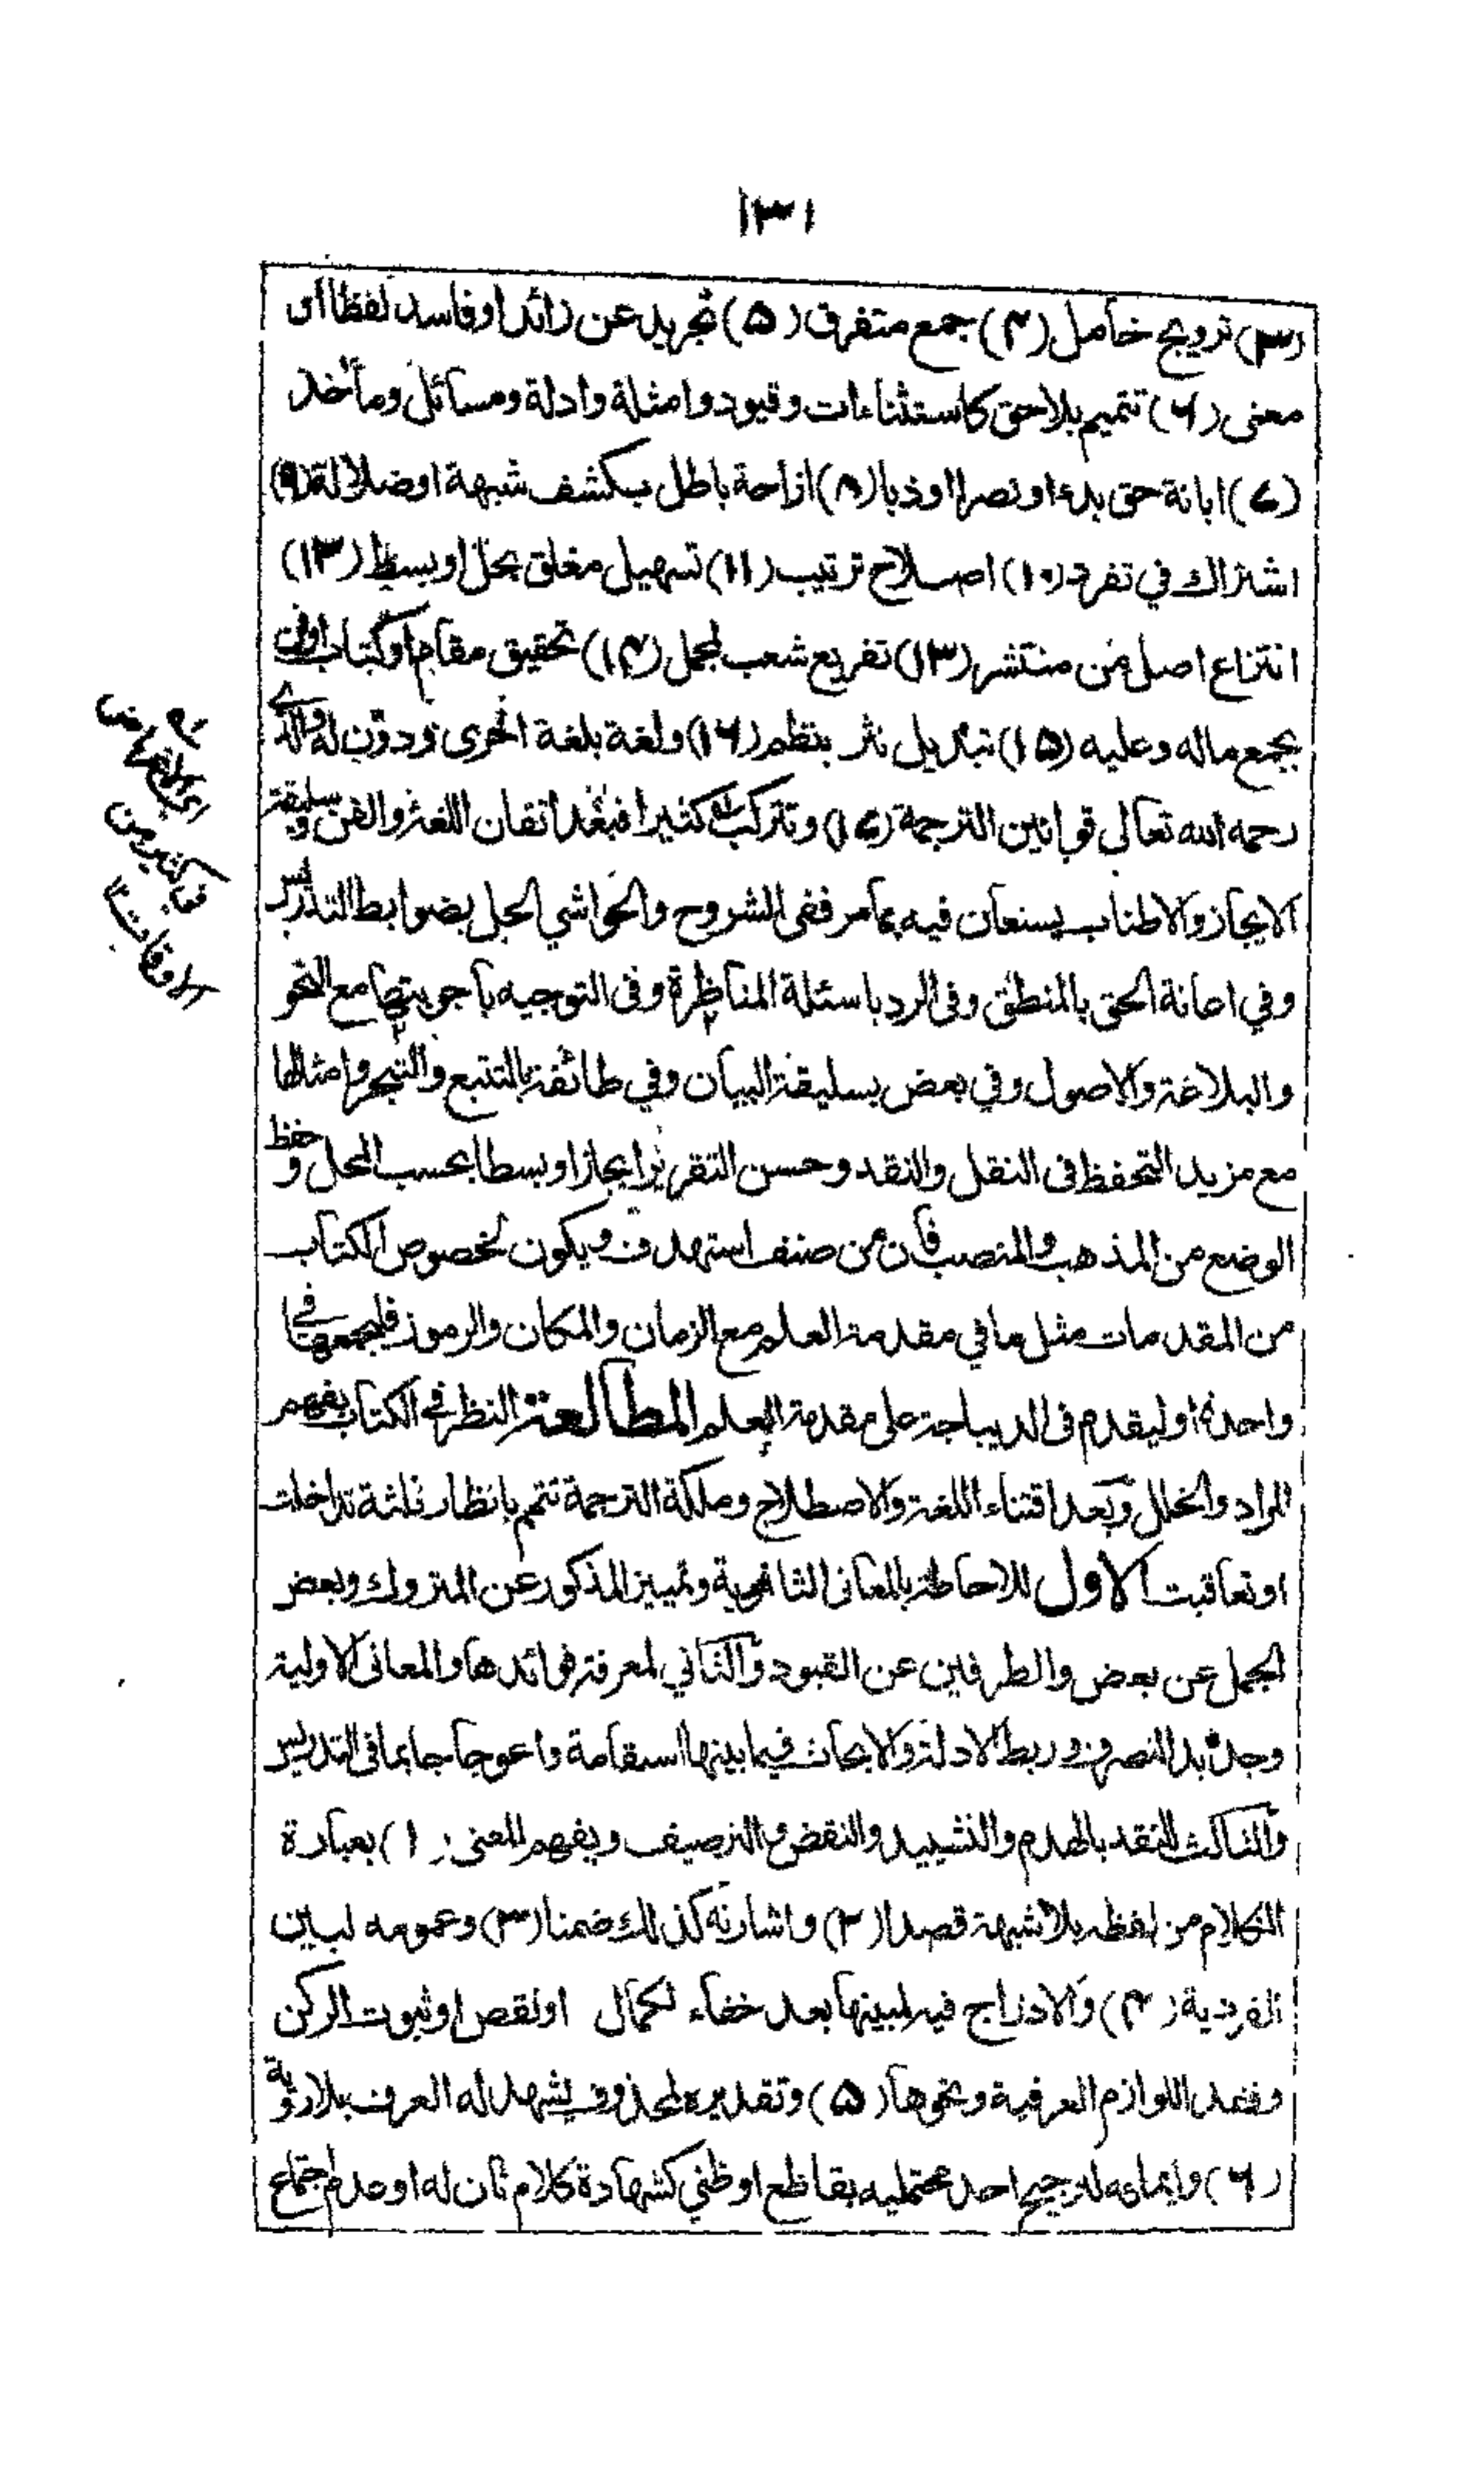 ١٣١
(٣) ترويج خامل (٤) جمع متفرق (٥) تجريد عن زائد او فاسد لفظا او
معنى (٦) تتميم بلاحق كاستثناءات وقيود وامثلة وادلة ومسائل ومآخذ
(٧) ابانة حق بدء او نصرا او ذبا (٨) ازاحة باطل بكشف شبهة او ضلالة (٩)
اشتراك في تفرد (١٠) اصلاح ترتيب (١١) تسهيل مغلق بحل او بسط (١٢)
انتزاع اصل من منتشر (١٣) تفريع شعب لمجمل (١٤) تحقيق مقام او كتاب او فن
بجمع ماله وعليه (١٥) تبديل نثر بنظم (١٦) ولغة بلغة اخرى ودون له والدي
رحمه الله تعالى قوانين الترجمة (١٧) وتتركب كثيرا فبعد اتقان اللغة والفن وسليقة
الايجاز والاطناب يستعان فيه بما مر ففى الشروح والحواشي الحل بضوابط التدريس
وفي اعانة الحق بالمنطق وفى الرد باسئلة المناظرة وفى التوجيه باجوبتها مع النحو
والبلاغة والاصول وفي بعض بسليقة البيان وفي طائفة بالتتبع والتبحر وامثالها
مع مزيد التحفظ فى النقل والنقد وحسن التقرير ايجازا وبسطا بحسب المحل وحفظ
الوضع من المذهب والمنصب فان من صنف استهدف ويكون لخصوص الكتاب
من المقدمات مثل ما في مقدمة العلم مع الزمان والمكان والرموز فليجمعها في
واحدة او ليقدم فى الديباجة على مقدمة العلم المطالعة النظر في الكتاب بفهم
المراد والخلل وبعد اقتناء اللغة والاصطلاح وملكة الترجمة تتم بانظار ثلثة تداخلت
او تعاقبت الاول للاحاطة بالمعانى الثانوية وتمييز المذكور عن المتروك وبعض
الجمل عن بعض والطرفين عن القيود والثاني لمعرفة فوائدها والمعانى الاولية
وربط الادلة والابحاث فيما بينها استقامة واعوجاجا بما فى التدريس
والثالث للنقد بالهدم والتشييد والنقض والترصيف ويفهم المعنى (١) بعبارة
الكلام من لفظه بلا شبهة قصدا (٢) واشارته كذلك ضمنا (٣) وعمومه لبين
الفردية (٤) والادراج فيه لمبينها بعد خفاء لكمال او نقص او ثبوت الركن
وفقد اللوازم العرفية ونحوها (٥) وتقديره لمحذوف يشهد له العرف بلا روية
(٦) وايمائه لترجيح احد محتمليه بقاطع او ظني كشهادة كلام ثان له او عدم اجتماع